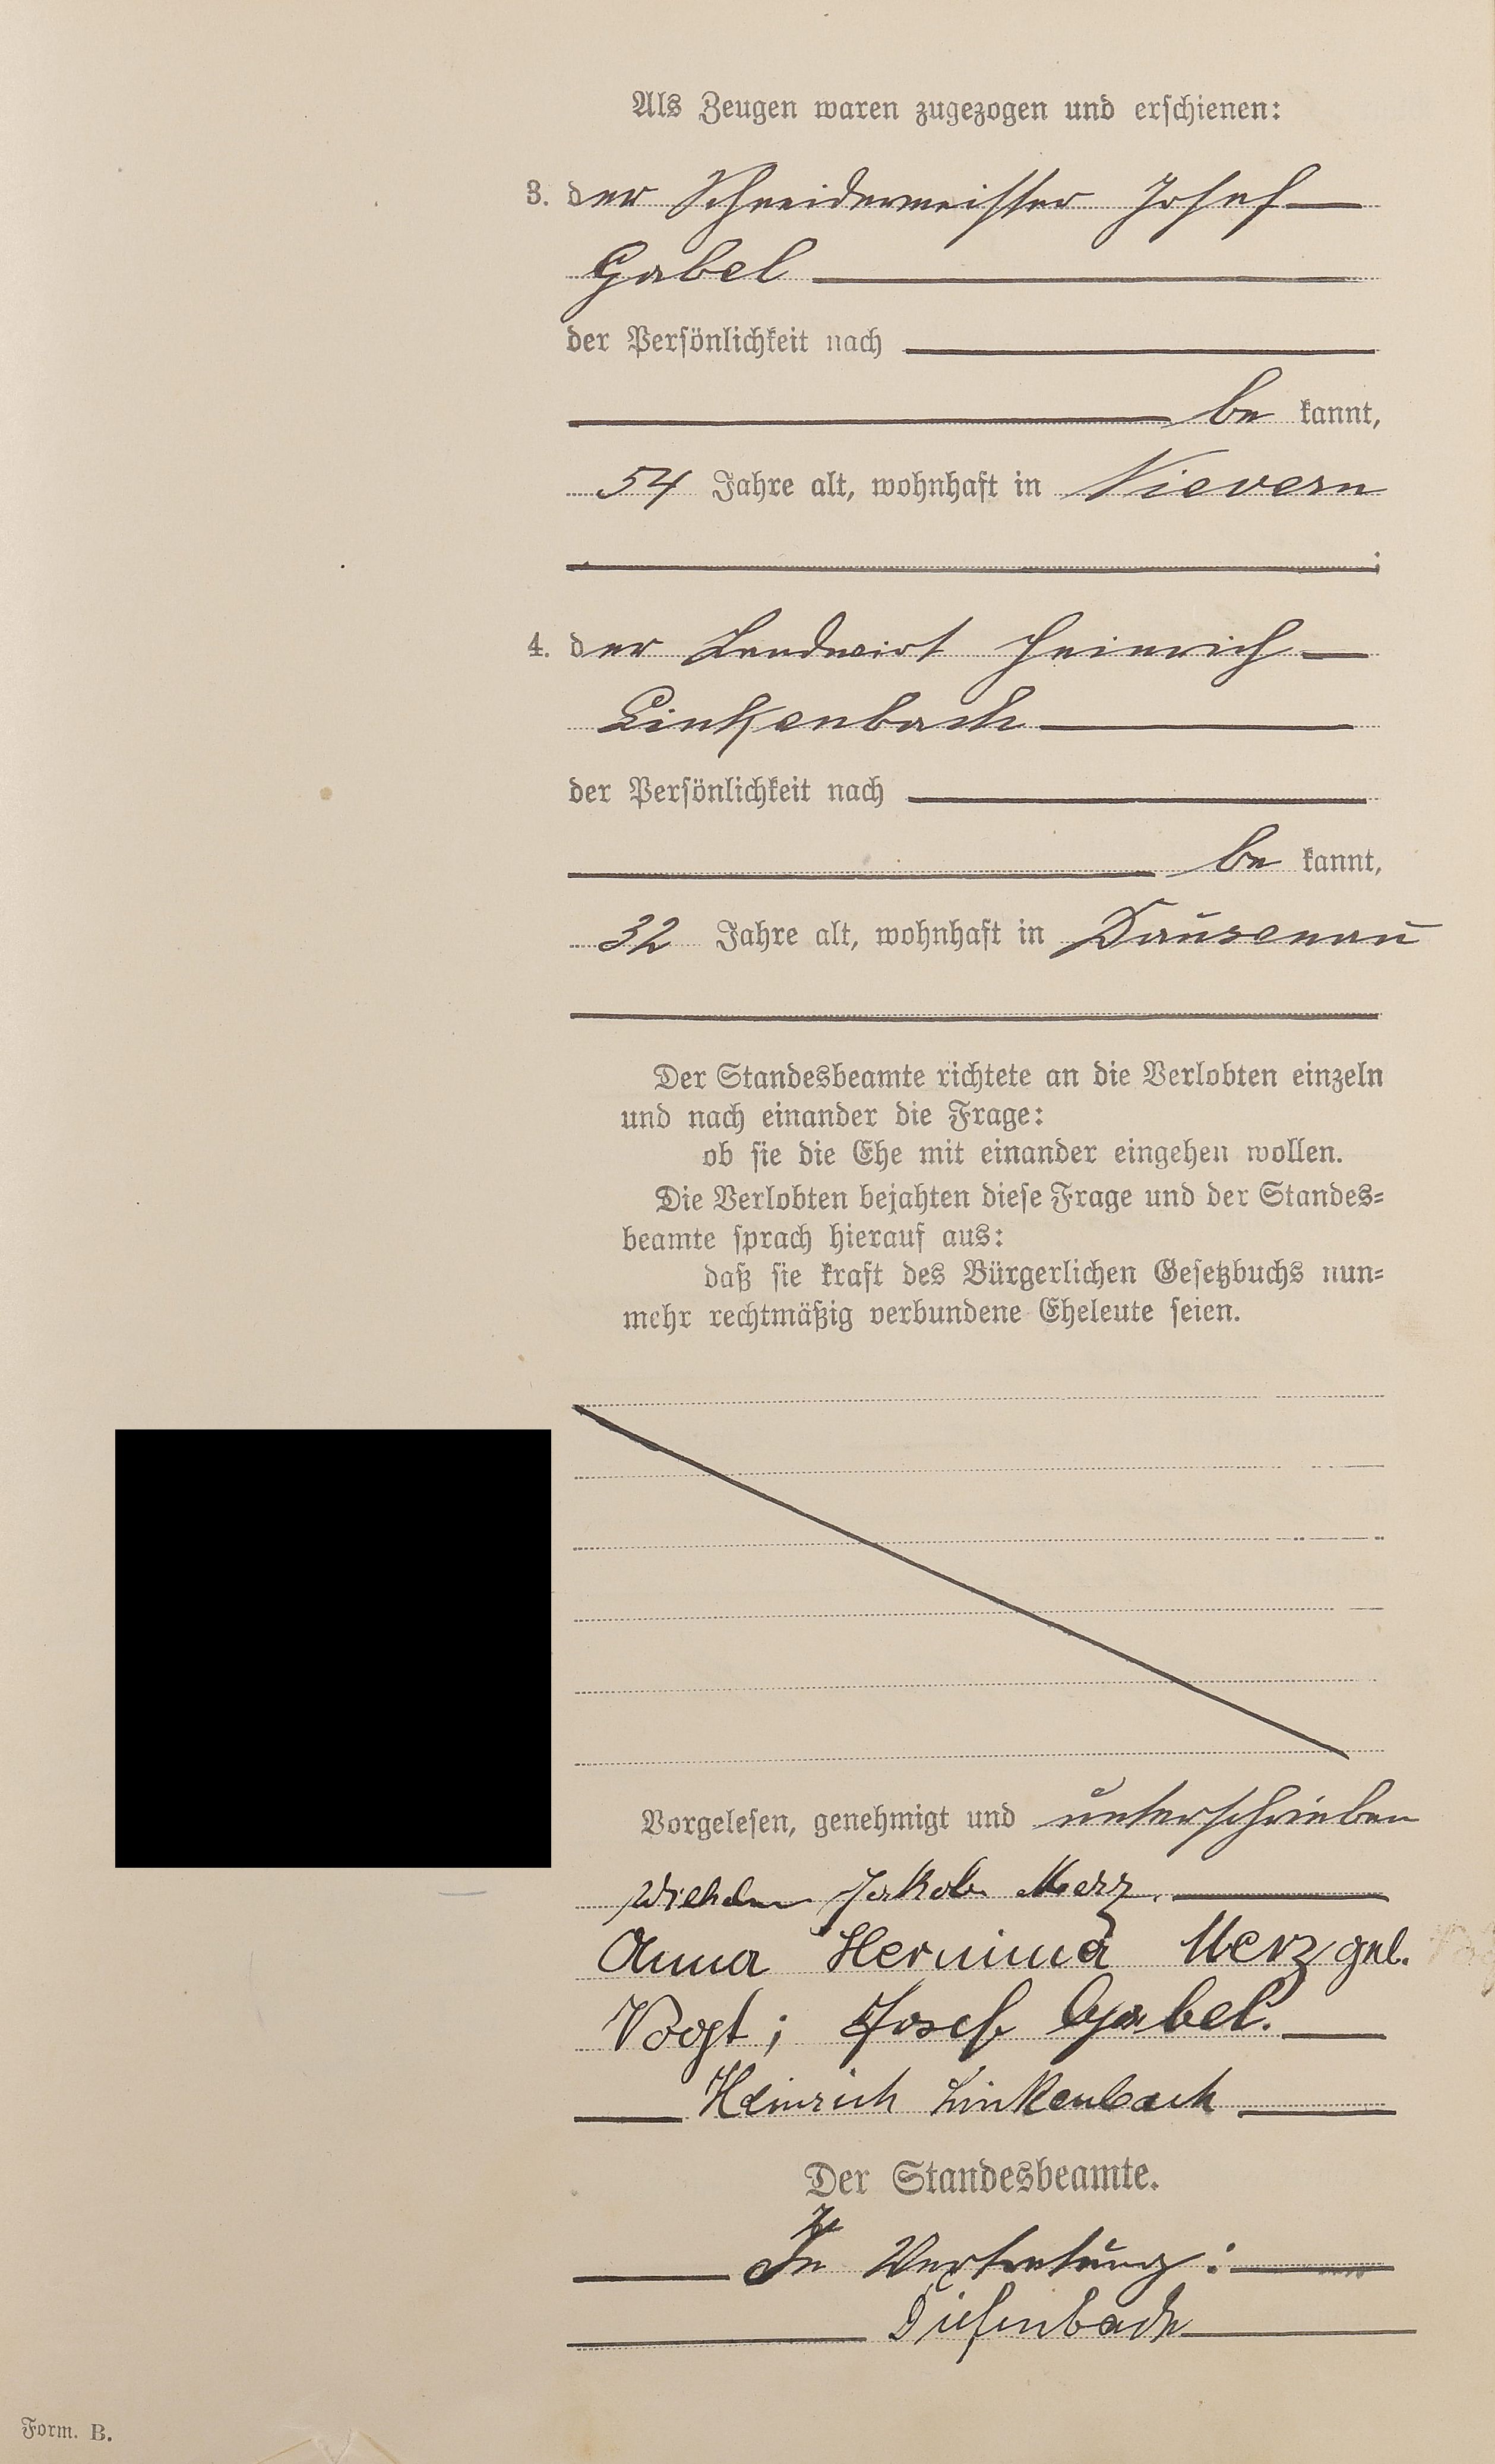 Als Zeugen waren zugezogen und erschienen:
3. der Schneidermeister Josef
Gabel
der Persönlichkeit nach
be kannt,
54 Jahre alt, wohnhaft in Nievern
;
4. der Landwirt Heinrich
Linkenbach
der Persönlichkeit nach
be kannt,
32 Jahre alt, wohnhaft in Dausenau
Der Standesbeamte richtete an die Verlobten einzeln
und nach einander die Frage:
ob sie die Ehe mit einander eingehen wollen.
Die Verlobten bejahten diese Frage und der Standes-
beamte sprach hierauf aus:
daß sie kraft des Bürgerlichen Gesetzbuchs nun-
mehr rechtmäßig verbundene Eheleute seien.
Vorgelesen, genehmigt und unterschrieben
Wilhelm Jakob Merz.
Anna Hermina Merz geb.
Vogt; Josef Gabel.
Heinrich Linkenbach
Der Standesbeamte.
In Vertretung:
Diefenbach
Form. B.